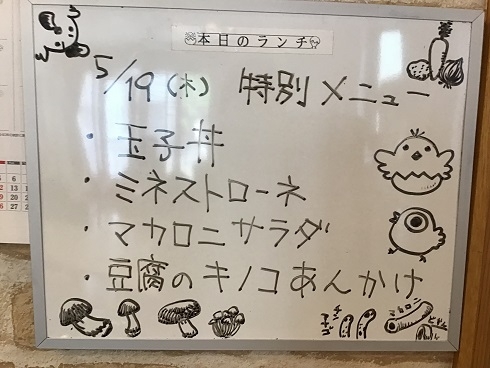 本日のランチ
5/19(木) 特別メニュー
・玉子丼
・ミネストローネ
・マカロニサラダ
・豆腐のキノコあんかけ